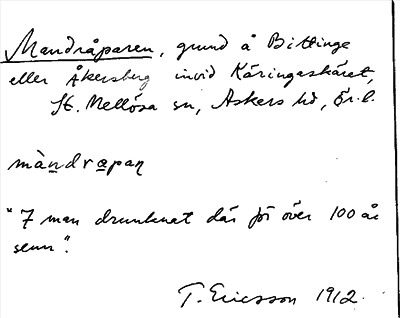 Mandråparen, grund å Bittinge
eller Åkersberg invid Käringaskäret,
St. Mellösa sn, Askers hd, Ör. l.
màndrapaɳ
"7 man drunknat där för över 100 år
senn".
T. Ericsson 1912.